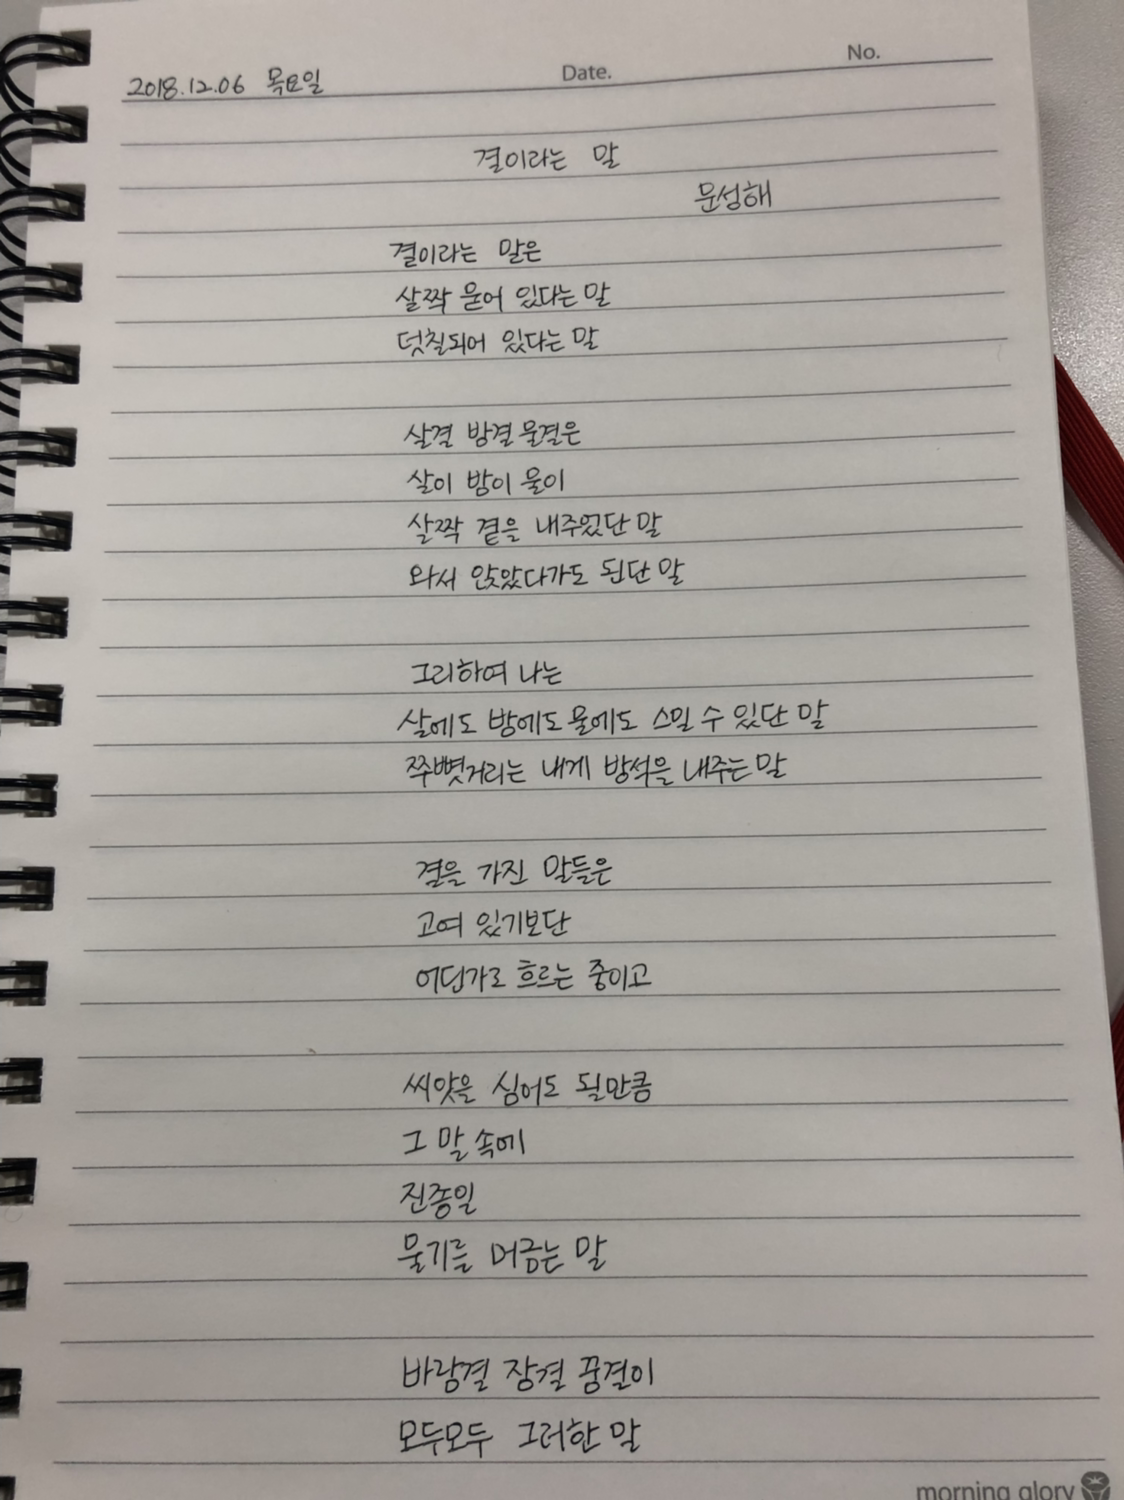 2018.12.06 목요일
Date.
No.
결이라는 말
문성해
결이라는 말은
살짝 묻어 있다는 말
덧칠되어 있다는 말
살결 밤결 물결은
살이 밤이 물이
살짝 곁을 내주었단 말
와서 앉았다가도 된단 말
그리하여 나는
살에도 밤에도 물에도 스밀 수 있단 말
쭈뼛거리는 내게 방석을 내주는 말
결을 가진 말들은
고여 있기보단
어딘가로 흐르는 중이고
씨앗을 심어도 될만큼
그 말 속에
진종일
물기를 머금는 말
바람결 잠결 꿈결이
모두모두 그러한 말
morning glory